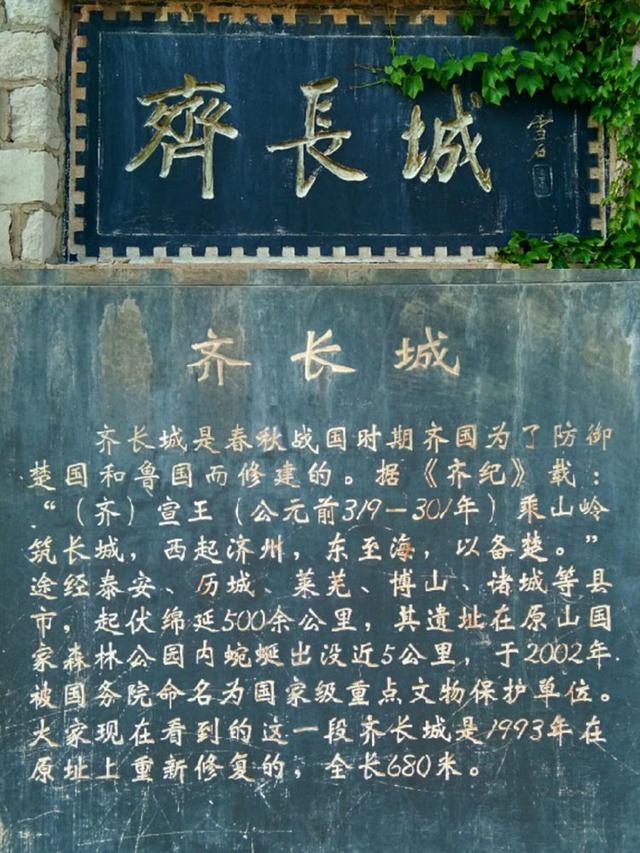 齊長城
齐长城
齐长城是春秋战国时期齐国为了防御
楚国和鲁国而修建的。据《齐纪》载：
“（齐）宣王（公元前319—301年）乘山岭
筑长城，西起济州，东至海，以备楚。”
途经泰安、历城、莱芜、博山、诸城等县
市，起伏绵延500余公里，其遗址在原山国
家森林公园内蜿蜒出没近5公里，于2002年
被国务院命名为国家级重点文物保护单位。
大家现在看到的这一段齐长城是1993年在
原址上重新修复的，全长680米。